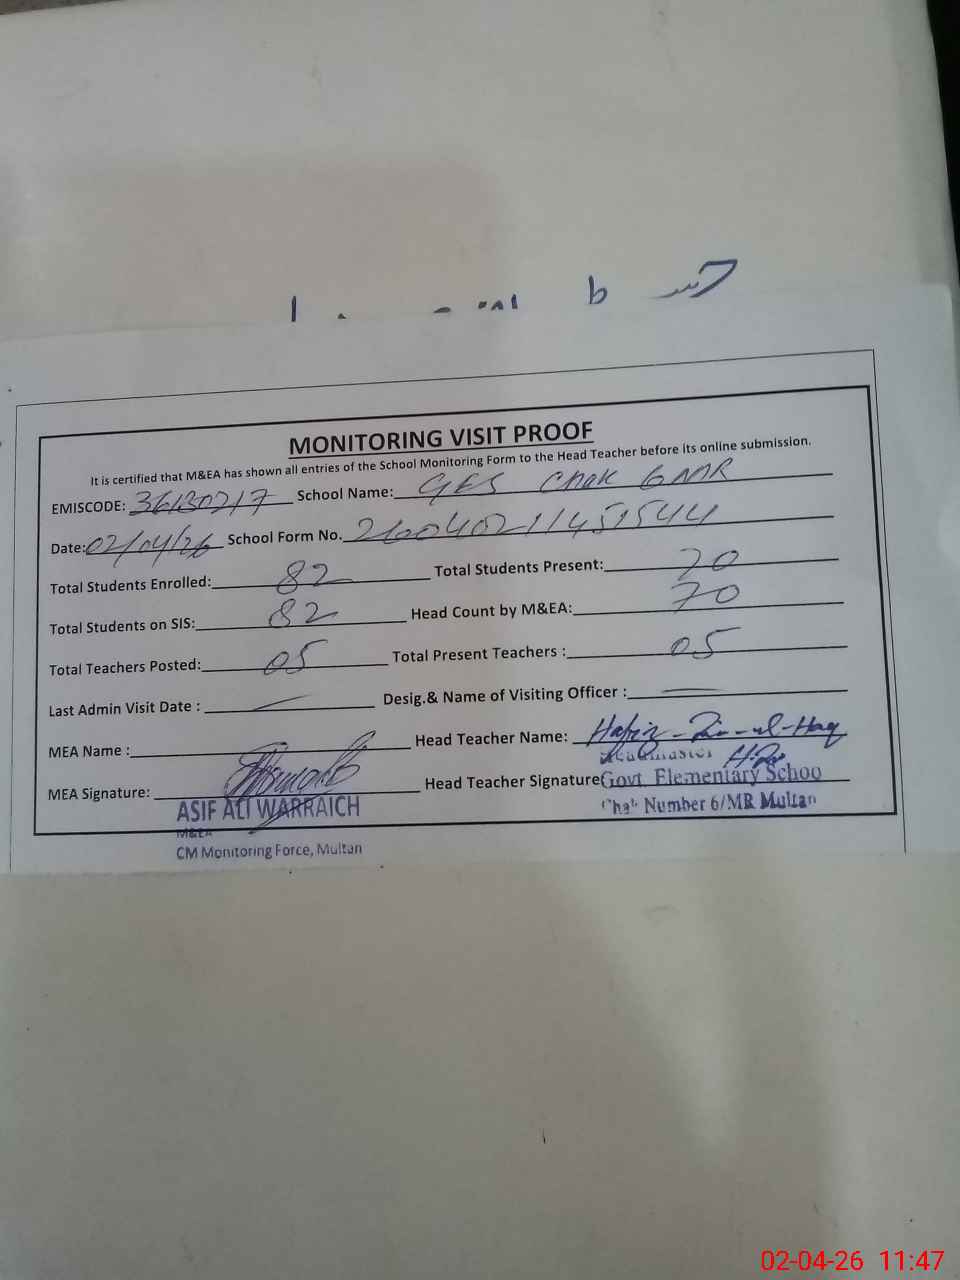 MONITORING VISIT PROOF
It is certified that M&EA has shown all entries of the School Monitoring Form to the Head Teacher before its online submission.
EMISCODE: 36130217 School Name: GES Chak 6 MR
Date: 02/04/26 School Form No. 26040211451544
Total Students Enrolled: 82 Total Students Present: 70
Total Students on SIS: 82 Head Count by M&EA: 70
Total Teachers Posted: 05 Total Present Teachers : 05
Last Admin Visit Date : — Desig.& Name of Visiting Officer : —
MEA Name : Head Teacher Name: Hafiz
Headmaster
MEA Signature: Head Teacher Signature Govt. Elementary Schoo
ASIF ALI WARRAICH Chak Number 6/MR Multan
M&EA
CM Monitoring Force, Multan
02-04-26 11:47